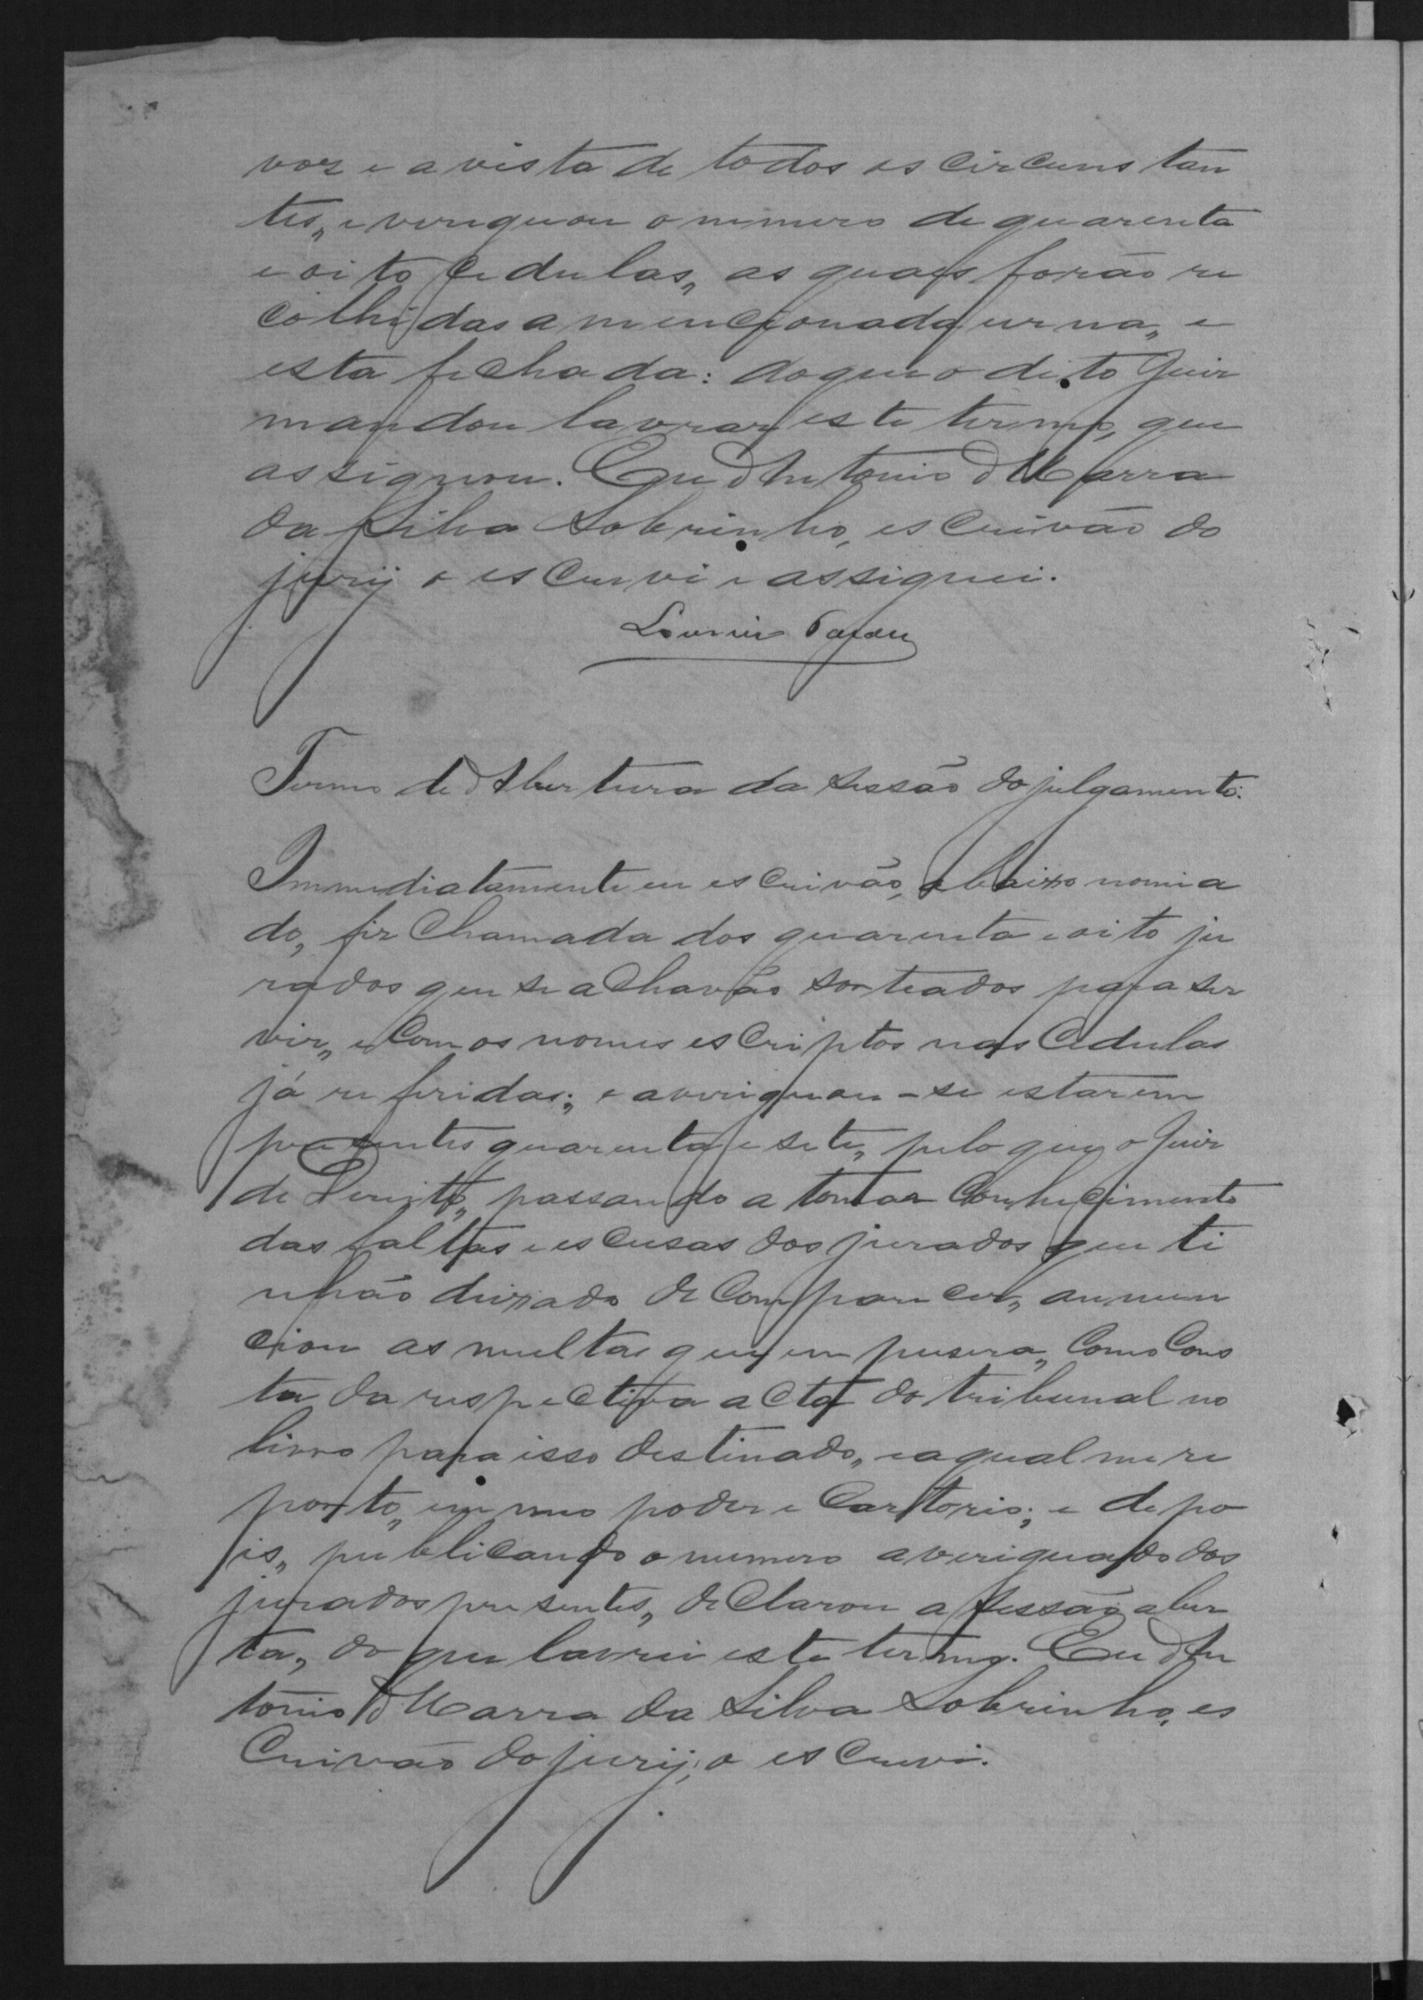 voz e a vista de todos os circunstan
tes,, e veriguou o numero de quarenta
e oito cedulas,, as quaes forão re
colhidas a mencionada urna,, e
esta fechada: do que o dito Juiz
mandou lavrar este termo, que
assignou. Eu Antonio Marra
da Silva Sobrinho, escrivão do
jury o escrevi e assignei.
Termo de Abertura da sessão do julgamento.
Immediatamente eu escrivão, abaixo nomia
do, fiz chamada dos quarenta e oito ju
rados que se achavão sorteados para ser
vir,, e com os nomes escriptos nas cedulas
já referidas;, e averiguou-se estarem
presentes quarenta e sete,, pelo que o Juiz
de Direito,, passando a tomar conhecimento
das faltas e escusas dos jurados que ti
nhão deixado de comparecer,, annun
ciou as multas que impusera,, como cons
ta da respectiva acta do tribunal no
livro para isso destinado,, e a qual me re
porto,, em meo poder e cartorio;, e depo
is,, publicando o numero averiguado dos
jurados presentes,, declarou a sessão aber
ta,, do que lavrei este termo. Eu An
tonio Marra da Silva Sobrinho, es
crivão do jury, o escrevi.